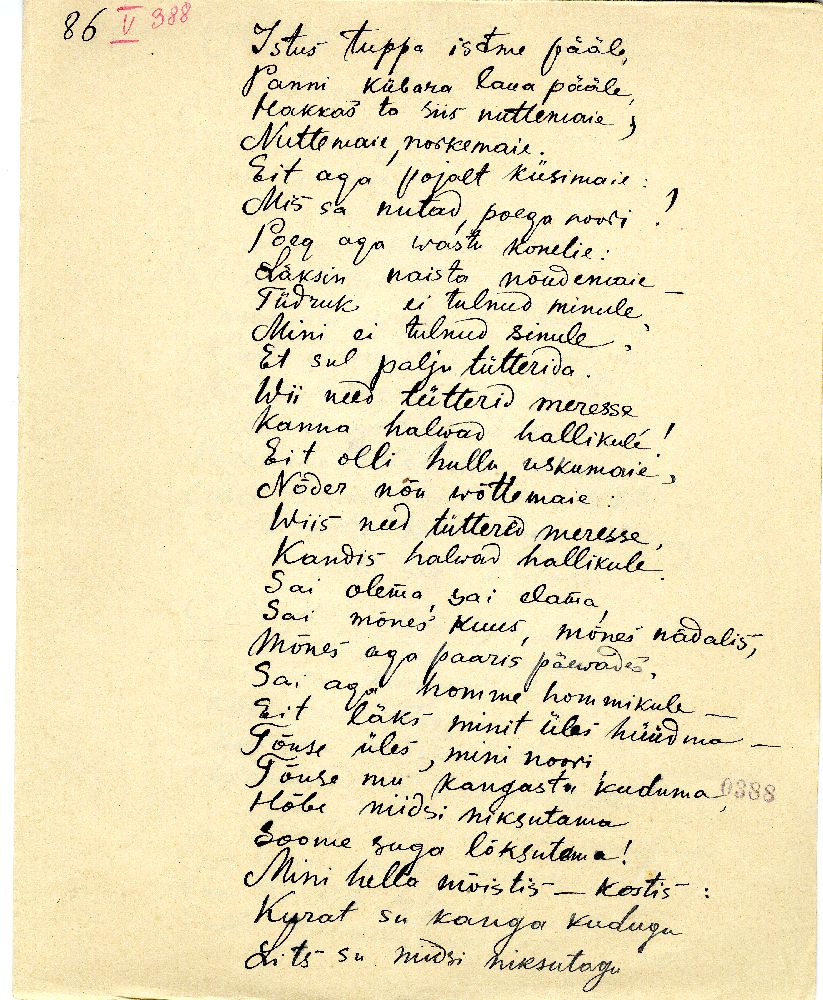 86 V 388
Istus tuppa istme pääle,
Panni kübara laua pääle,
Hakkas ta siis nuttemaie,
Nuttemaie, noskemaie.
Eit aga pojalt küsimaie:
Mis sa nutad, poega noori!
Poeg aga wastu konelie:
Läksin naista nõudemaie —
Tüdruk ei tulnud minule,
Mini ei tulnud sinule,
Et sul palju tütterida.
Wii need tütterid meresse
Kanna halwad hallikule!
Eit olli hullu uskumaie,
Nõder nõu wõttemaie:
Wiis need tütterid meresse,
Kandis halwad hallikule.
Sai olema, sai elama,
Sai mõnes kuus, mõnes nädalis,
Mõnes aga paaris päewades,
Sai aga homme hommikule —
Eit läks minit üles hüüdma —
Tõuse üles, mini noori
Tõuse mu kangastu kuduma,
0388
Hõbe niidsi niksutama
Soome suga lõksutama!
Mini hella mõistis — kostis:
Kurat su kanga kudugu
Lits su niidsi niksutagu